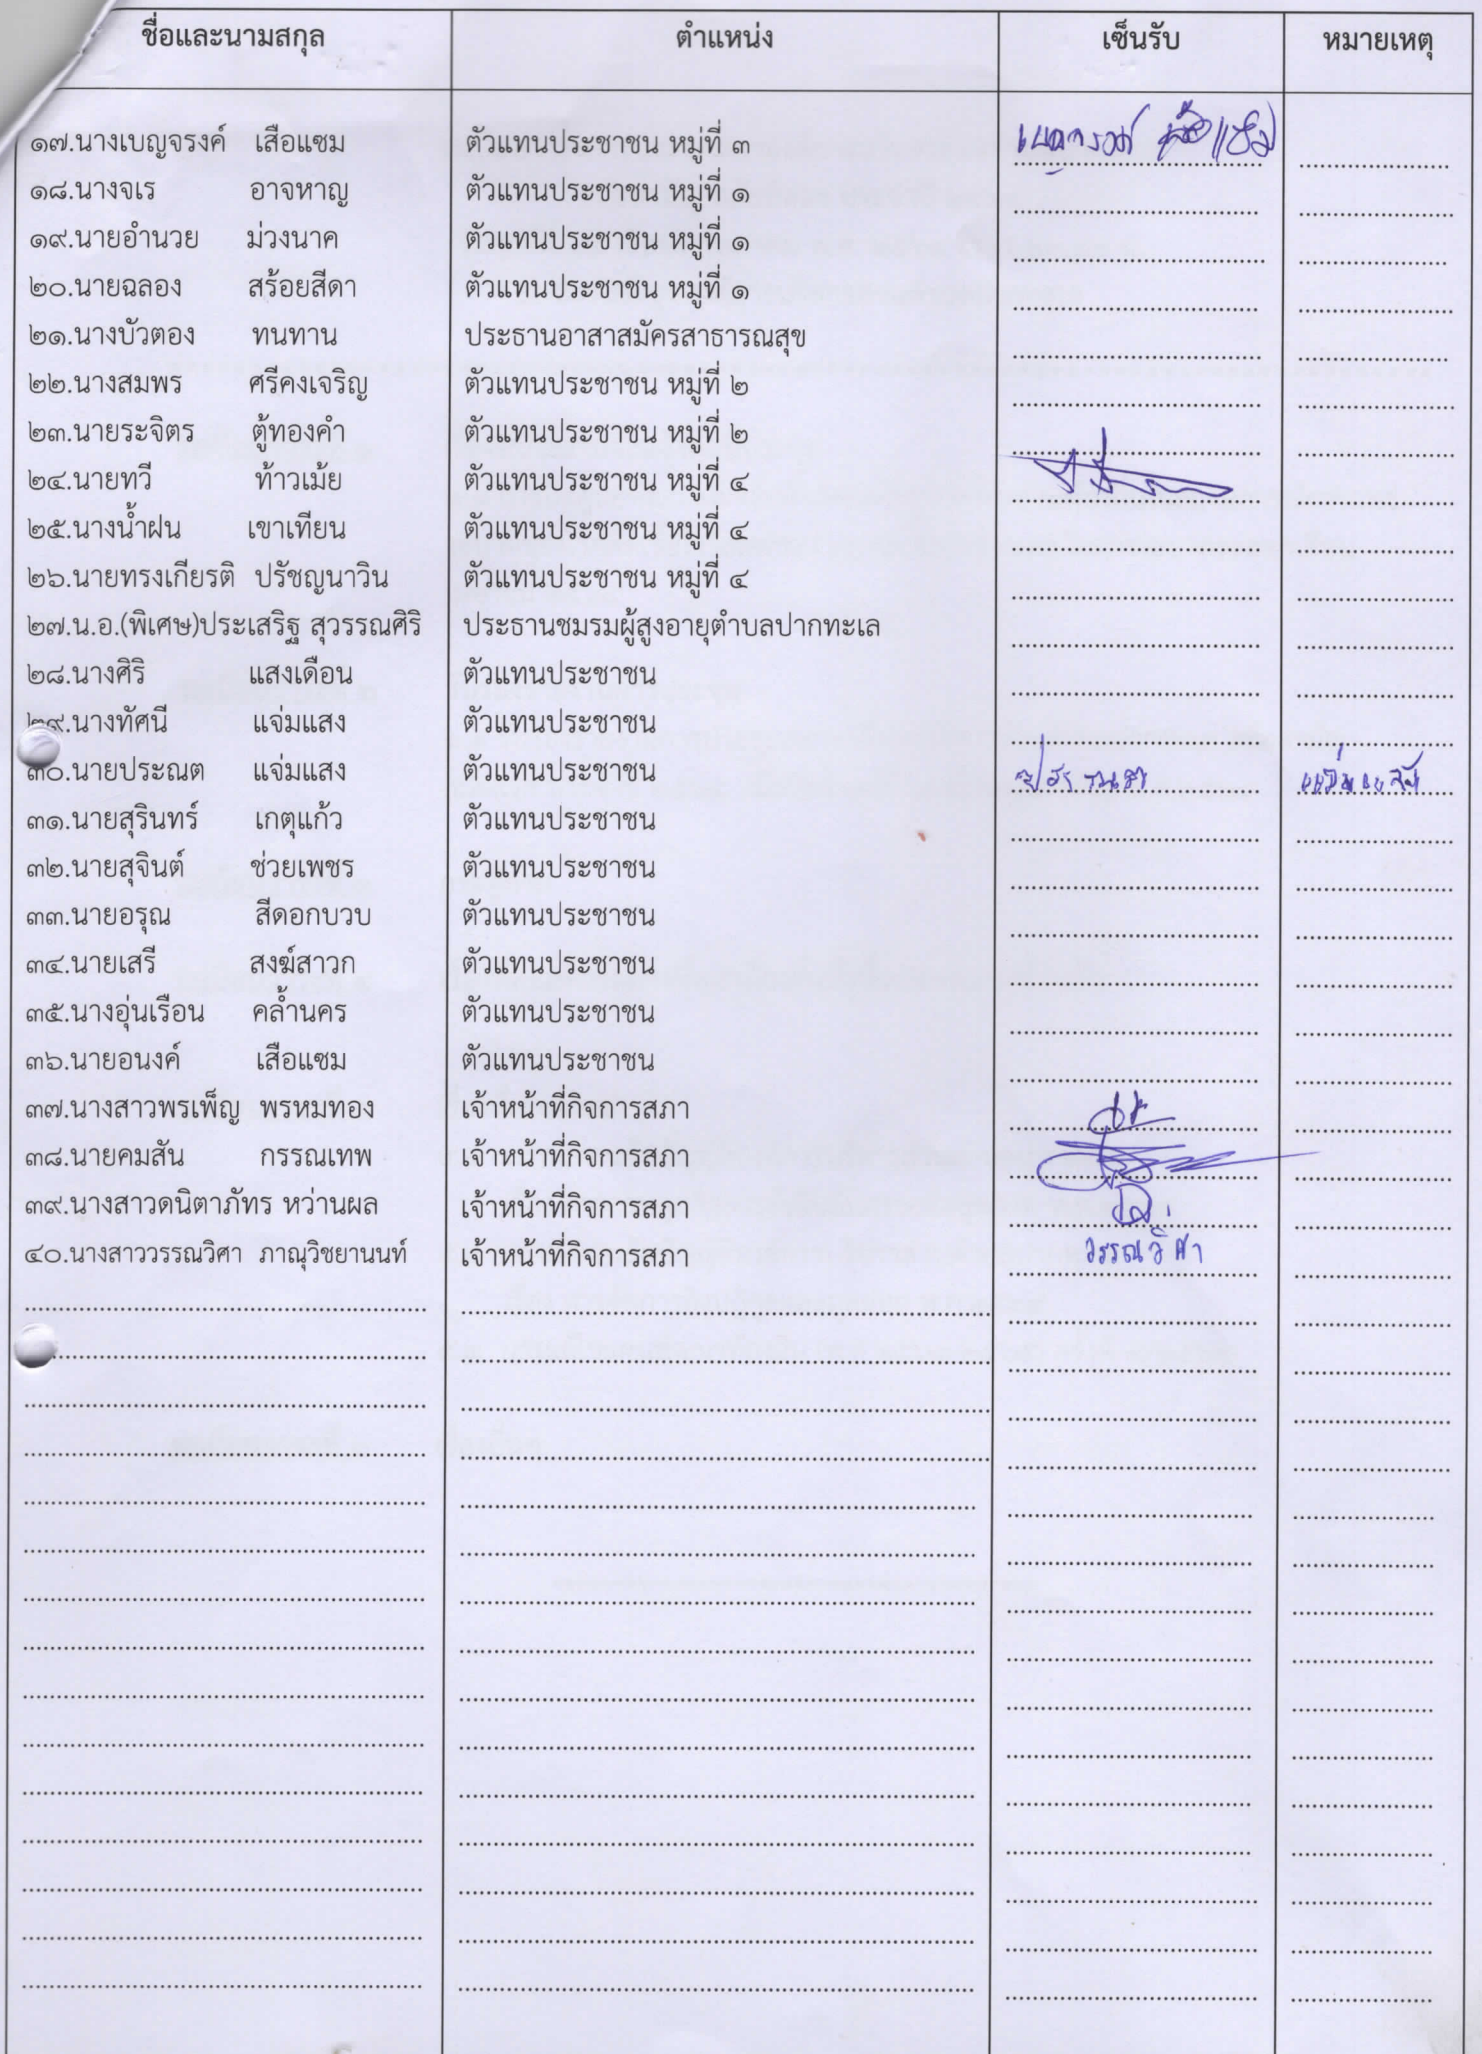 ชื่อและนามสกุล ตำแหน่ง เซ็นรับ หมายเหตุ
๑๗.นางเบญจรงค์ เสือแซม ตัวแทนประชาชน หมู่ที่ ๓ เบญจรงค์ เสือแซม
๑๘.นางจเร อาจหาญ ตัวแทนประชาชน หมู่ที่ ๑
๑๙.นายอำนวย ม่วงนาค ตัวแทนประชาชน หมู่ที่ ๑
๒๐.นายฉลอง สร้อยสีดา ตัวแทนประชาชน หมู่ที่ ๑
๒๑.นางบัวตอง ทนทาน ประธานอาสาสมัครสาธารณสุข
๒๒.นางสมพร ศรีคงเจริญ ตัวแทนประชาชน หมู่ที่ ๒
๒๓.นายระจิตร ตู้ทองคำ ตัวแทนประชาชน หมู่ที่ ๒
๒๔.นายทวี ท้าวเม้ย ตัวแทนประชาชน หมู่ที่ ๔
๒๕.นางน้ำฝน เขาเทียน ตัวแทนประชาชน หมู่ที่ ๔
๒๖.นายทรงเกียรติ ปรัชญนาวิน ตัวแทนประชาชน หมู่ที่ ๔
๒๗.น.อ.(พิเศษ)ประเสริฐ สุวรรณศิริ ประธานชมรมผู้สูงอายุตำบลปากทะเล
๒๘.นางศิริ แสงเดือน ตัวแทนประชาชน
๒๙.นางทัศนี แจ่มแสง ตัวแทนประชาชน
๓๐.นายประณต แจ่มแสง ตัวแทนประชาชน
๓๑.นายสุรินทร์ เกตุแก้ว ตัวแทนประชาชน
๓๒.นายสุจินต์ ช่วยเพชร ตัวแทนประชาชน
๓๓.นายอรุณ สีดอกบวบ ตัวแทนประชาชน
๓๔.นายเสรี สงฆ์สาวก ตัวแทนประชาชน
๓๕.นางอุ่นเรือน คล้ำนคร ตัวแทนประชาชน
๓๖.นายอนงค์ เสือแซม ตัวแทนประชาชน
๓๗.นางสาวพรเพ็ญ พรหมทอง เจ้าหน้าที่กิจการสภา
๓๘.นายคมสัน กรรณเทพ เจ้าหน้าที่กิจการสภา
๓๙.นางสาวดนิตาภัทร หว่านผล เจ้าหน้าที่กิจการสภา
๔๐.นางสาววรรณวิศา ภาณุวิชยานนท์ เจ้าหน้าที่กิจการสภา วรรณวิศา